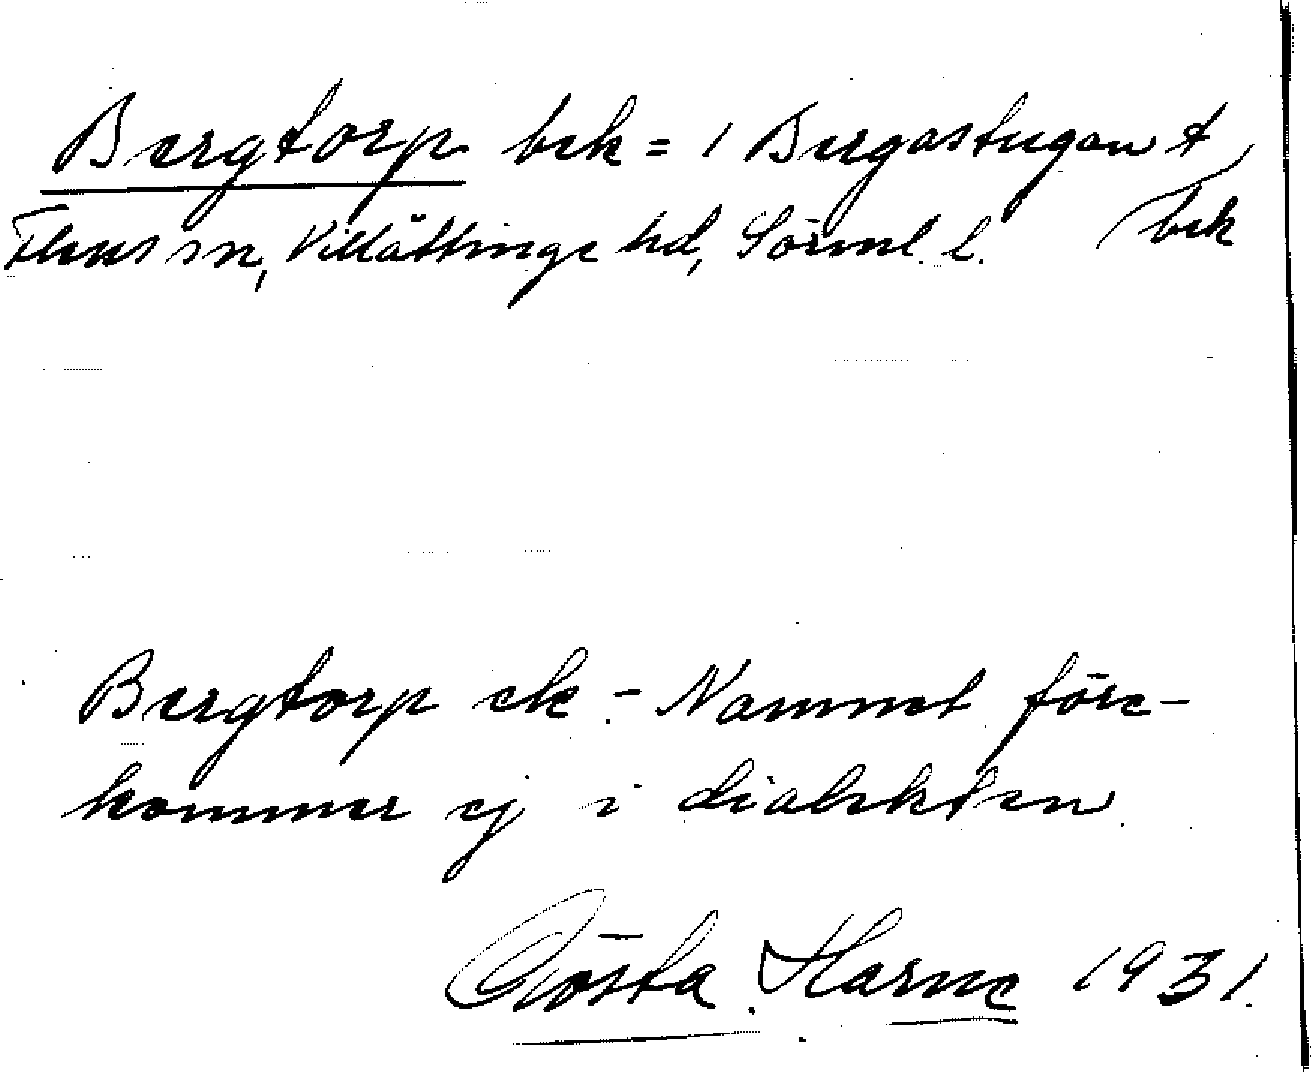 Bergtorp bek = 1 Bergastugan t,
bek
Flens sn, Villåttinge hd, Sörml. l.
Bergtorp ek. - Namnet före-
kommer ej i dialekten.
Gösta Harne 1931.